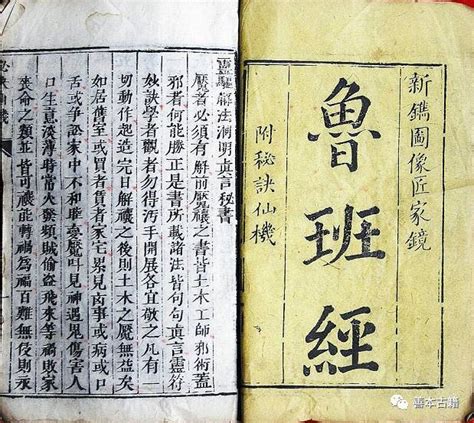 新鐫圖像匠家鏡
魯班經
附秘訣仙機
靈驅解法洞明真言秘書
魘者必須有解前魘禳之書皆土木工師邪術蓋
邪者何能勝正是書所載諸法皆句句真言靈符
妙訣學者觀者勿得汚手開展各宜敬之凡有一
切動作起造完日解禳之後則土木之魘無益矣
如居舊室或買者賃者家宅累見凶事或病或口
舌或爭訟家中不和睡臥魘叫見神遇鬼傷害人
口生意淡薄時常火發類賊偷盜飛來等禍敗家
喪命之類並皆可禳能轉禍為福百難無侵則永
善本古籍